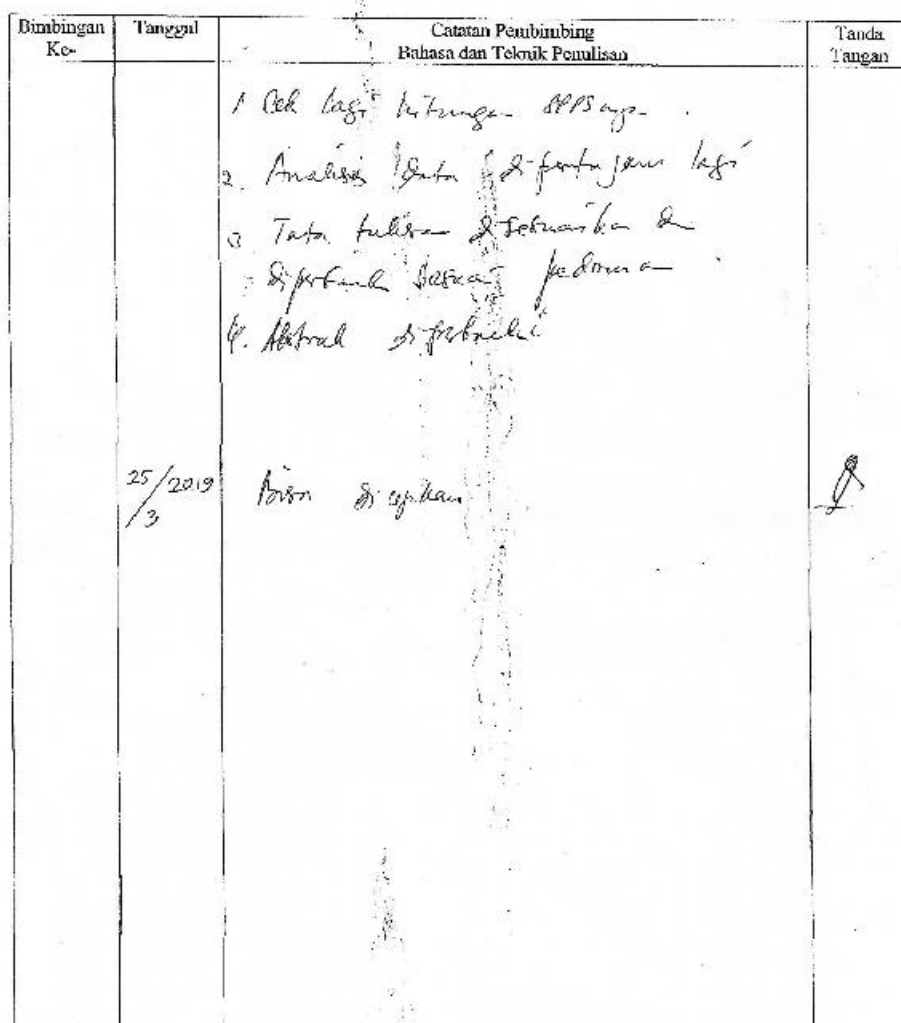 Bimbingan Ke-
Tanggal
Catatan Pembimbing
Bahasa dan Teknik Penulisan
Tanda Tangan
1 Cek lagi hitungan SPPSnya.
2. Analisis data dipertajam lagi
3 Tata tulisan disesuaikan dan
diperbaiki sesuai pedoman.
4. Abstrak diperbaiki
25/3 2019
Bisa diujikan